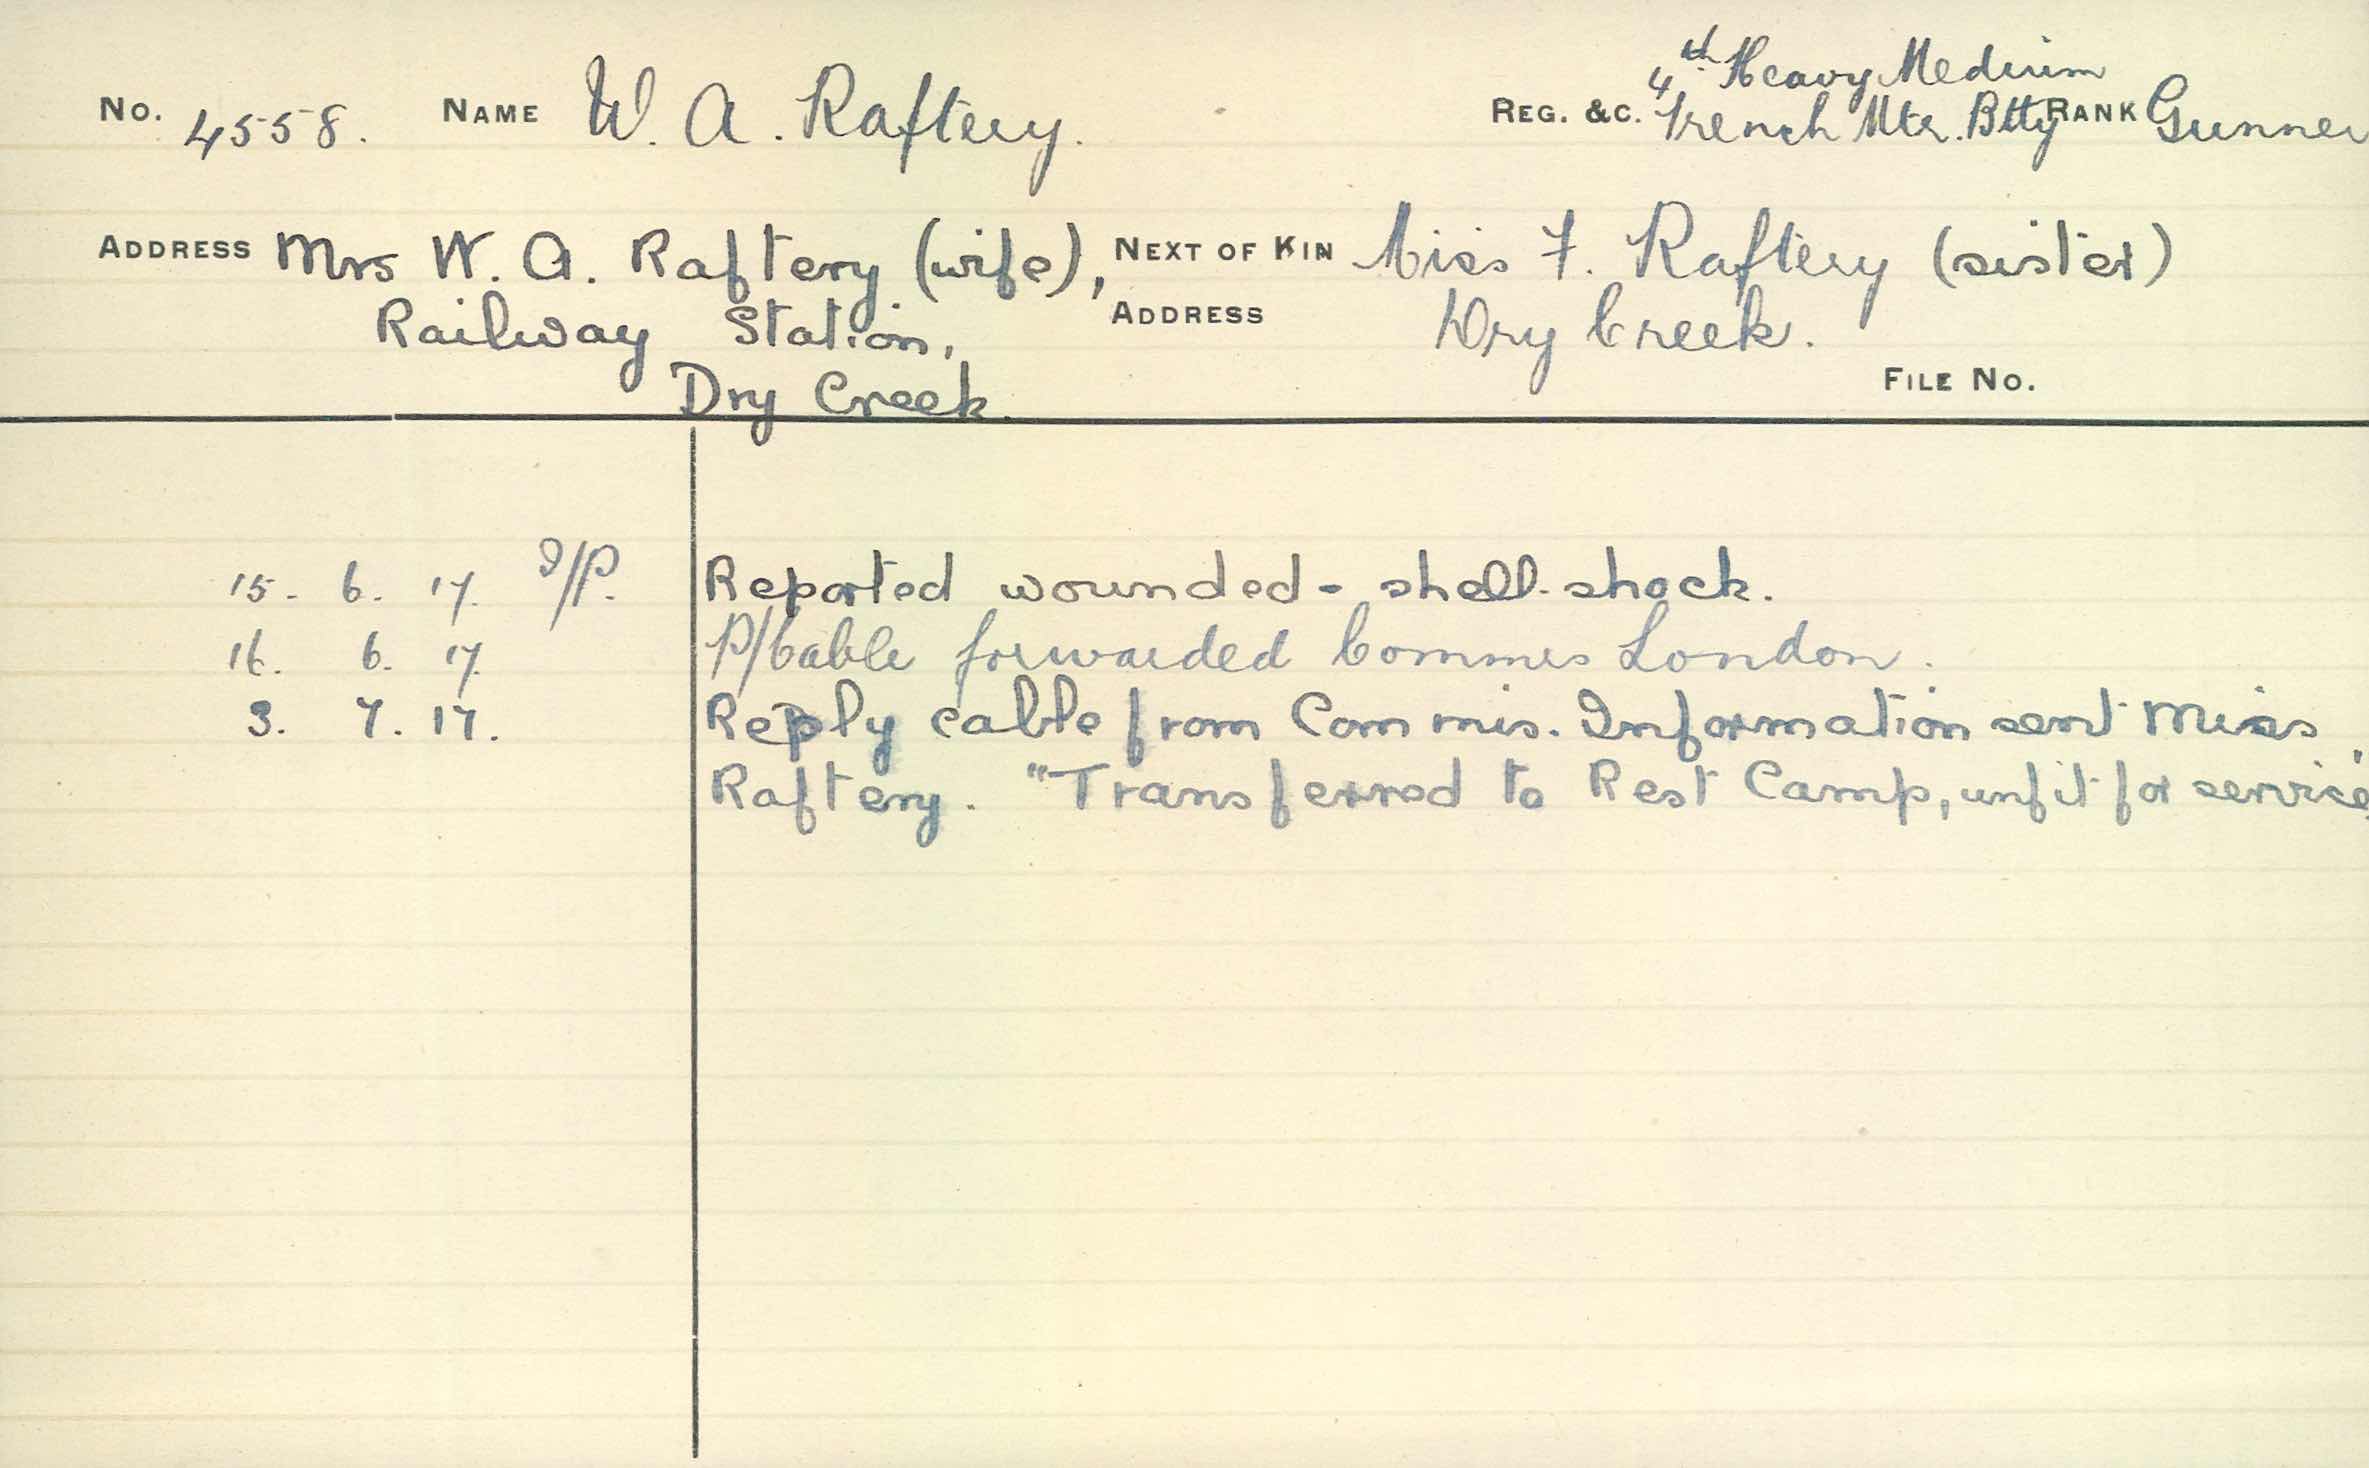 4th Heavy Medium
No. 4558. NAME W. A. Raftery. REG. &C. Trench Mtr. Btty RANK Gunner
ADDRESS Mrs W. A. Raftery (wife), NEXT OF KIN Miss F. Raftery (sister)
Railway Station, ADDRESS Dry Creek.
Dry Creek. FILE No.
15. 6. 17. I/P. Reported wounded - shell-shock.
16. 6. 17. P/Cable forwarded Commis London.
3. 7. 17. Reply cable from Commis. Information sent Miss
Raftery. "Transferred to Rest Camp, unfit for service